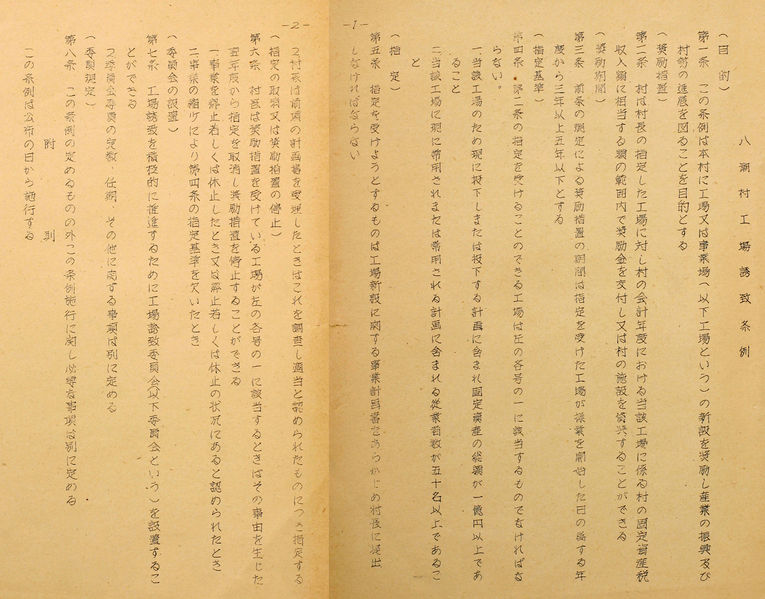 -1-
八潮村工場誘致条例
(目的)
第一条 この条例は本村に工場又は事業場(以下工場という)の新設を奨励し産業の振興及び
村勢の進展を図ることを目的とする
(奨励措置)
第二条 村は村長の指定した工場に対し村の会計年度における当該工場に係る村の固定資産税
収入額に相当する額の範囲内で奨励金を交付し又は村の施設を貸与することができる
(奨励期間)
第三条 前条の規定による奨励措置の期間は指定を受けた工場が操業を開始した日の属する年
度から三年以上五年以下とする
(指定基準)
第四条 第二条の指定を受けることのできる工場は左の各号の一に該当するものでなければな
らない。
一、当該工場のため現に投下しまたは投下する計画に含まれ固定資産の総額が一億円以上であ
ること
二、当該工場に現に常用されまたは常用される計画に含まれる従業者数が五十名以上であるこ
と
(指定)
第五条 指定を受けようとするものは工場新設に関する事業計画書をあらかじめ村長に提出
しなければならない
-2-
2 村長は前項の計画書を受理したときはこれを調査し適当と認められたものにつき指定する
(指定の取消又は奨励措置の停止)
第六条 村長は奨励措置を受けている工場が左の各号の一に該当するときはその事由を生じた
翌年度から指定を取消し奨励措置を停止することができる
一、事業を廃止若しくは休止したとき又は廃止若しくは休止の状況にあると認められたとき
二、事業の縮少により第四条の指定基準を欠いたとき
(委員会の設置)
第七条 工場誘致を積極的に推進するために工場誘致委員会(以下委員会という)を設置するこ
とができる
2 委員会委員の定数、任期、その他に関する事項は別に定める
(委任規定)
第八条 この条例の定めるものの外この条例施行に関し必要な事項は別に定める
附則
この条例は公布の日から施行する